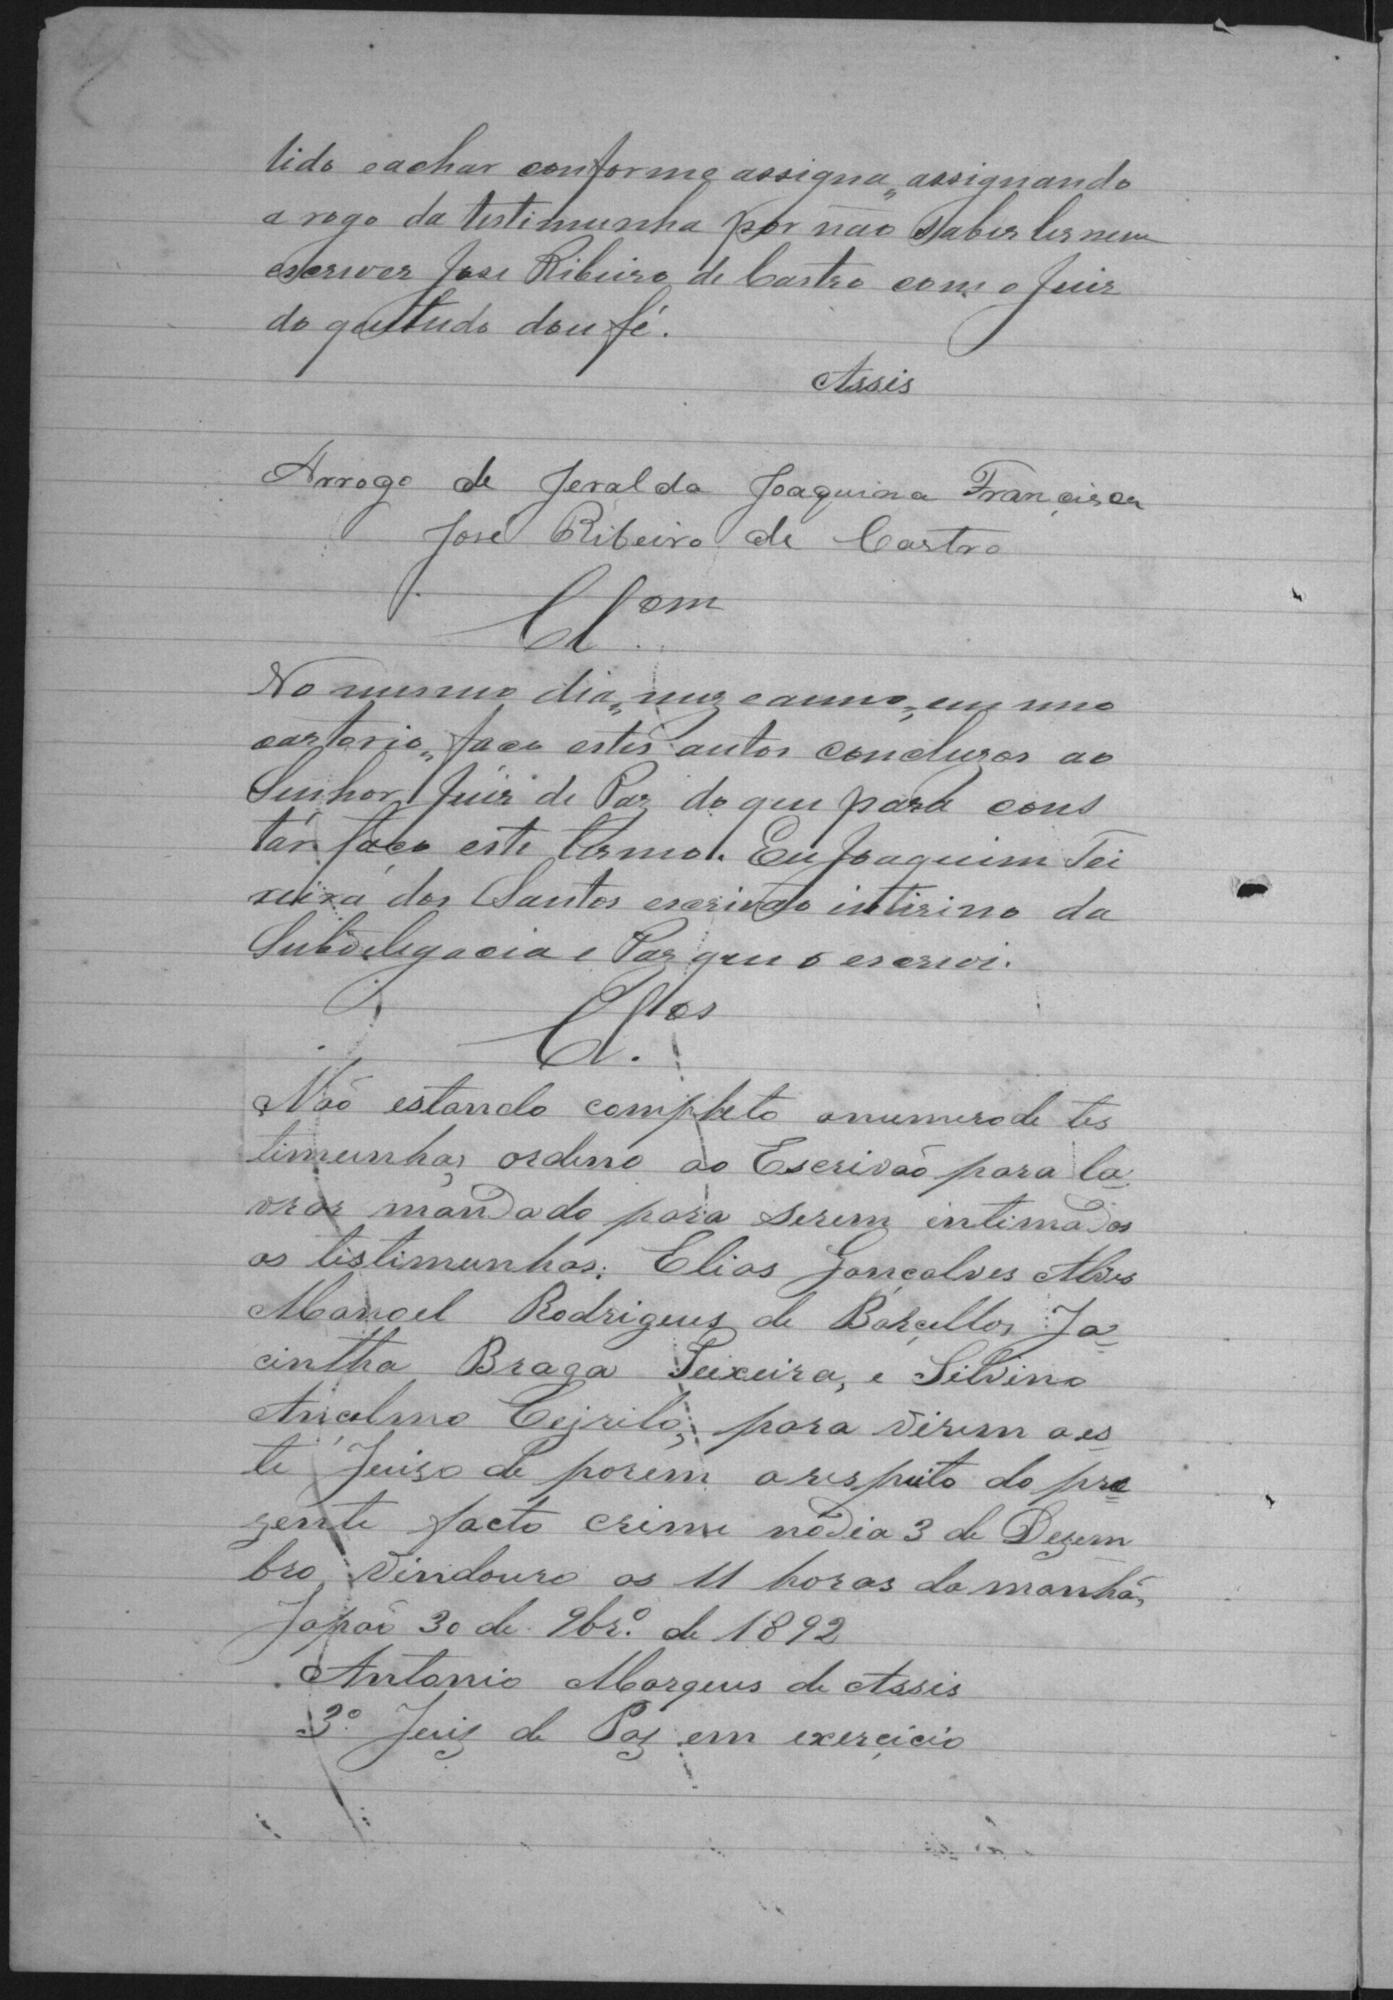 lido e achar conforme assigna, assignando
a rogo da testimunha por não saber ler nem
escrever José Ribeiro de Castro com o Juiz
do que tudo dou fé.
Assis
Arrogo de Jeralda Joaquina Francisca
José Ribeiro de Castro
Cl.om
No mesmo dia, mez e anno, em meo
cartorio, faço estes autos concluzos ao
Senhor Juiz de Paz do que para cons
tár faço este termo. Eu Joaquim Tei
xeira dos Santos escrivão intirino da
Subdelegacia e Paz que o escrevi.
Cl.tos
Não estando completo o numero de tes
timunhas, ordeno ao Escrivão para la=
vrar mandado para serem intimados
as testimunhas: Elias Gonçalves Alves
Manoel Rodrigeus de Barcellos, Ja=
cintha Braga Teixeira, e Silvino
Ancelmo Cejrilo, para virem a es=
te Jeuizo de porem a respeito do pre=
zente facto crime no dia 3 de Dezem
bro vindouro as 11 horas da manhã,
Japão 30 de 9br.º de 1892
Antonio Marqeus de Assis
3º Jeuiz de Paz em exercicio